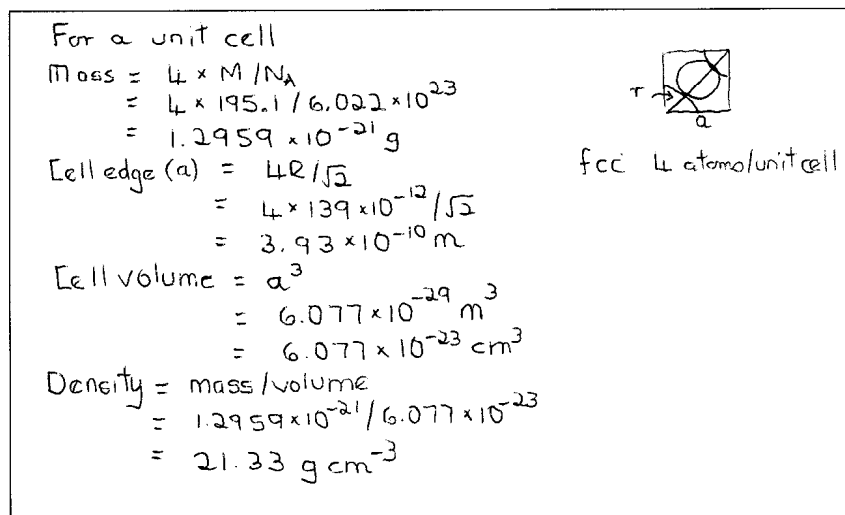 For a unit cell
Mass = 4 × M/N_A
= 4 × 195.1/6.022×10²³
= 1.2959 ×10⁻²¹ g
Cell edge (a) = 4R/√2
= 4×139×10⁻¹²/√2
= 3.93×10⁻¹⁰ m
Cell volume = a³
= 6.077×10⁻²⁹ m³
= 6.077×10⁻²³ cm³
Density = mass/volume
= 1.2959×10⁻²¹/6.077×10⁻²³
= 21.33 g cm⁻³
r
a
fcc 4 atoms/unit cell